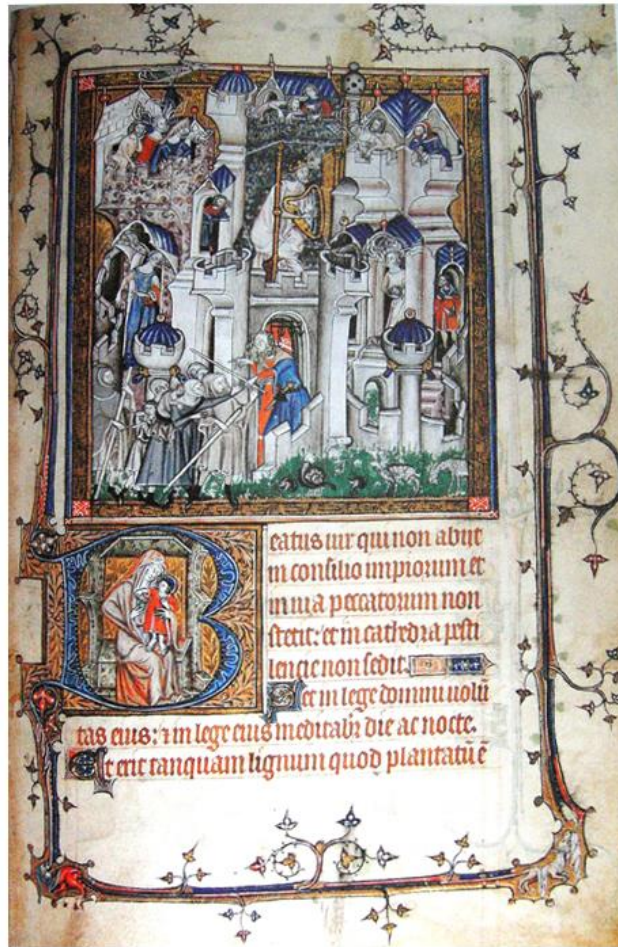 Beatus uir qui non abiit
in consilio impiorum et
in uia peccatorum non
stetit: et in cathedra pesti
lencie non sedit.
Set in lege domini uolū
tas eius: ⁊ in lege eius meditabr̄ die ac nocte.
Et erit tanquam lignum quod plantatū ē